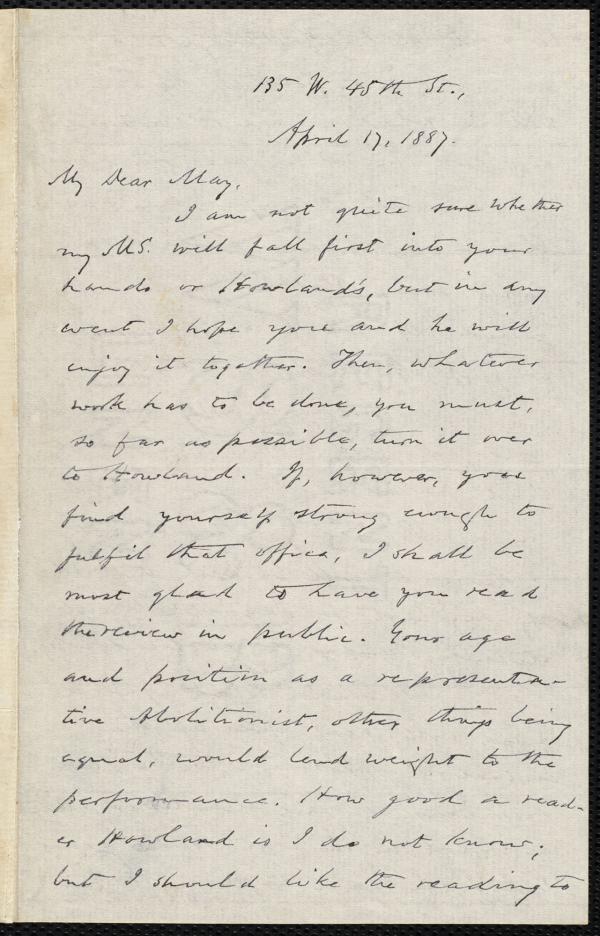 135 W. 45th St.,
April 17, 1887.
My Dear May,
I am not quite sure whether
my MS. will fall first into your
hands or Howland's, but in any
event I hope you and he will
enjoy it together. Then, whatever
work has to be done, you must,
so far as possible, turn it over
to Howland. If, however, you
find yourself strong enough to
fulfil that office, I shall be
most glad to have you read
the review in public. Your age
and position as a representa-
tive Abolitionist, other things being
equal, would lend weight to the
performance. How good a read-
er Howland is I do not know;
but I should like the reading to